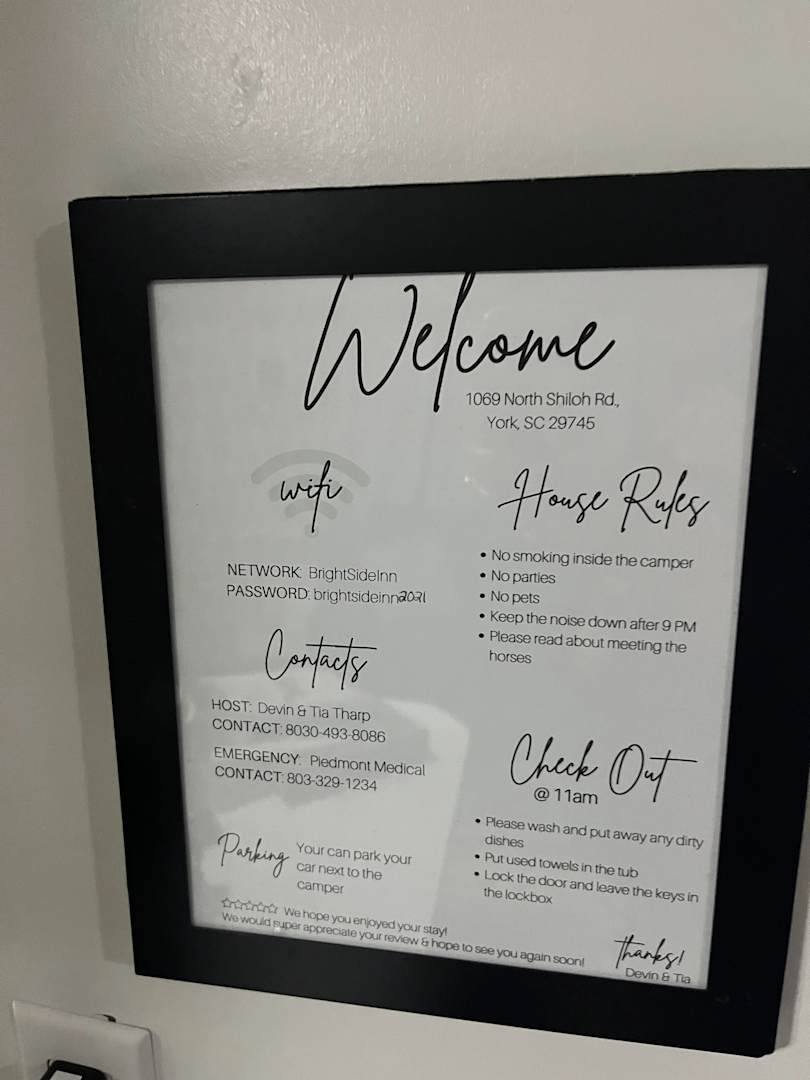 Welcome
1069 North Shiloh Rd.,
York, SC 29745
wifi
NETWORK: BrightSideInn
PASSWORD: brightsideinn2021
Contacts
HOST: Devin & Tia Tharp
CONTACT: 8030-493-8086
EMERGENCY: Piedmont Medical
CONTACT: 803-329-1234
Parking
Your can park your
car next to the
camper
House Rules
• No smoking inside the camper
• No parties
• No pets
• Keep the noise down after 9 PM
• Please read about meeting the
horses
Check Out
@ 11am
• Please wash and put away any dirty
dishes
• Put used towels in the tub
• Lock the door and leave the keys in
the lockbox
☆☆☆☆☆ We hope you enjoyed your stay!
We would super appreciate your review & hope to see you again soon!
thanks!
Devin & Tia